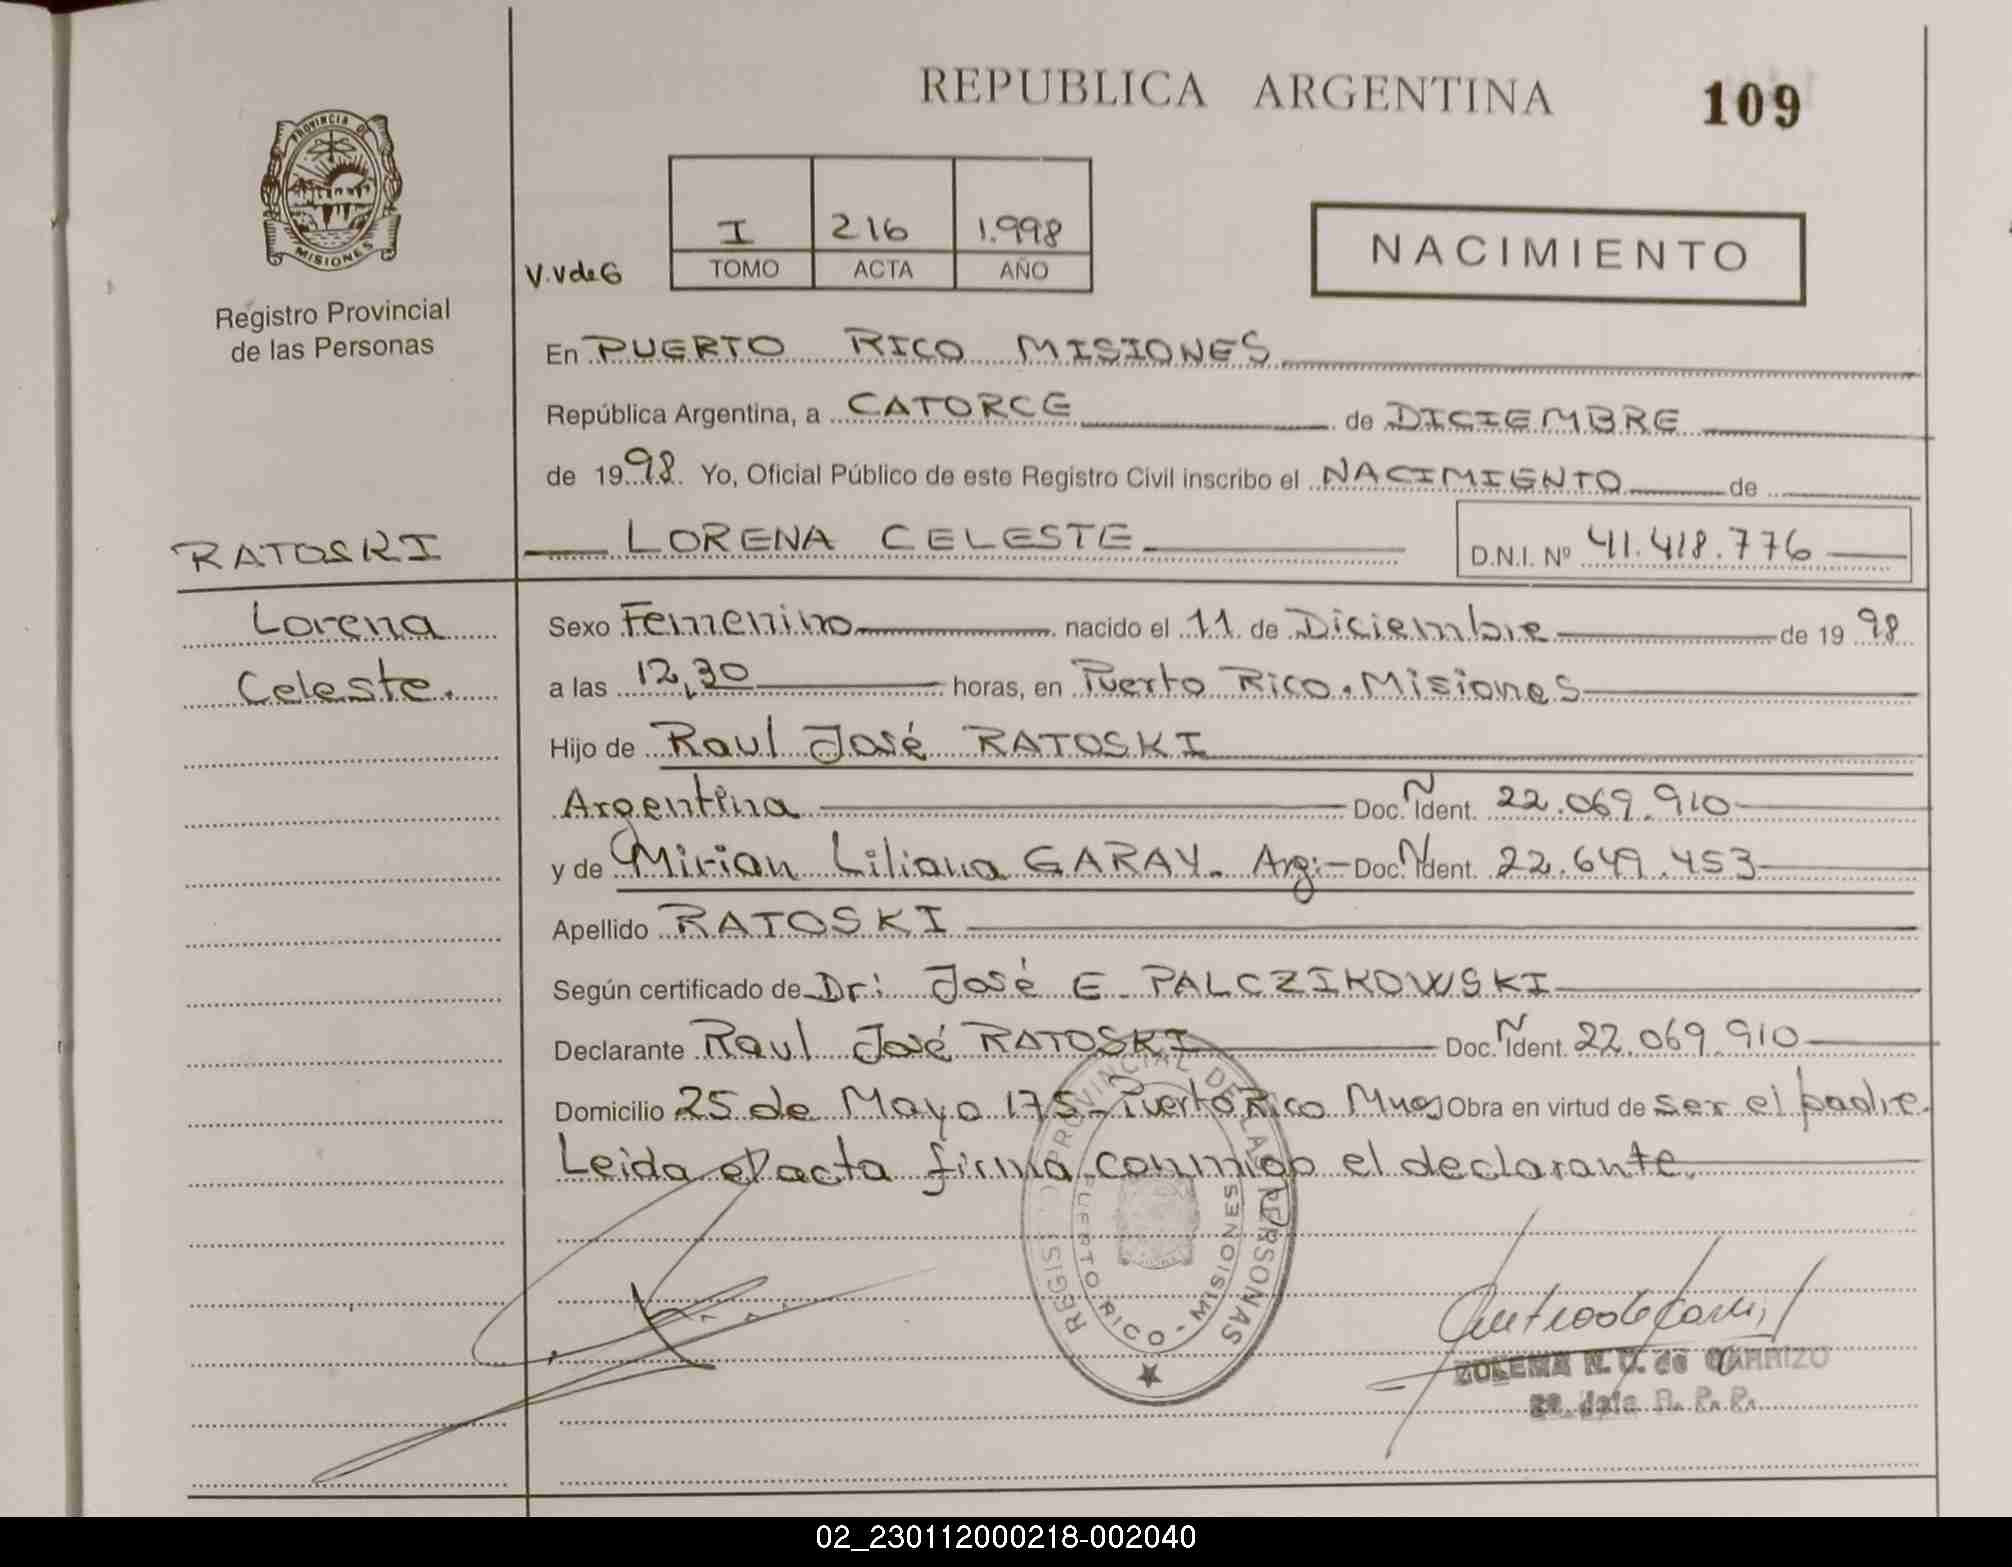 REPUBLICA ARGENTINA
109
PROVINCIA DE
MISIONES
Registro Provincial
de las Personas
I 216 1.998
V.VdeG
TOMO ACTA AÑO
NACIMIENTO
En PUERTO RICO MISIONES
República Argentina, a CATORCE de DICIEMBRE
de 1998. Yo, Oficial Público de este Registro Civil inscribo el NACIMIENTO de
RATOSKI
LORENA CELESTE
D.N.I. Nº 41.418.776
Lorena
Celeste.
Sexo Femenino nacido el 11 de Diciembre de 1998
a las 12,30 horas, en Puerto Rico. Misiones
Hijo de Raul José RATOSKI
Argentina Doc. Ñ Ident. 22.069.910
y de Mirian Liliana GARAY. Arg:- Doc. Ñ Ident. 22.649.453
Apellido RATOSKI
Según certificado de Dr: José E. PALCZIKOWSKI
Declarante Raul José RATOSKI Doc. Ñ Ident. 22.069.910
Domicilio 25 de Mayo 175- Puerto Rico Mnes Obra en virtud de ser el padre.
Leida el acta firma conmigo el declarante.
REGISTRO PROVINCIAL DE LAS PERSONAS
PUERTO RICO - MISIONES
ZULEMA N. V. de CARRIZO
R. P. P.
02_230112000218-002040